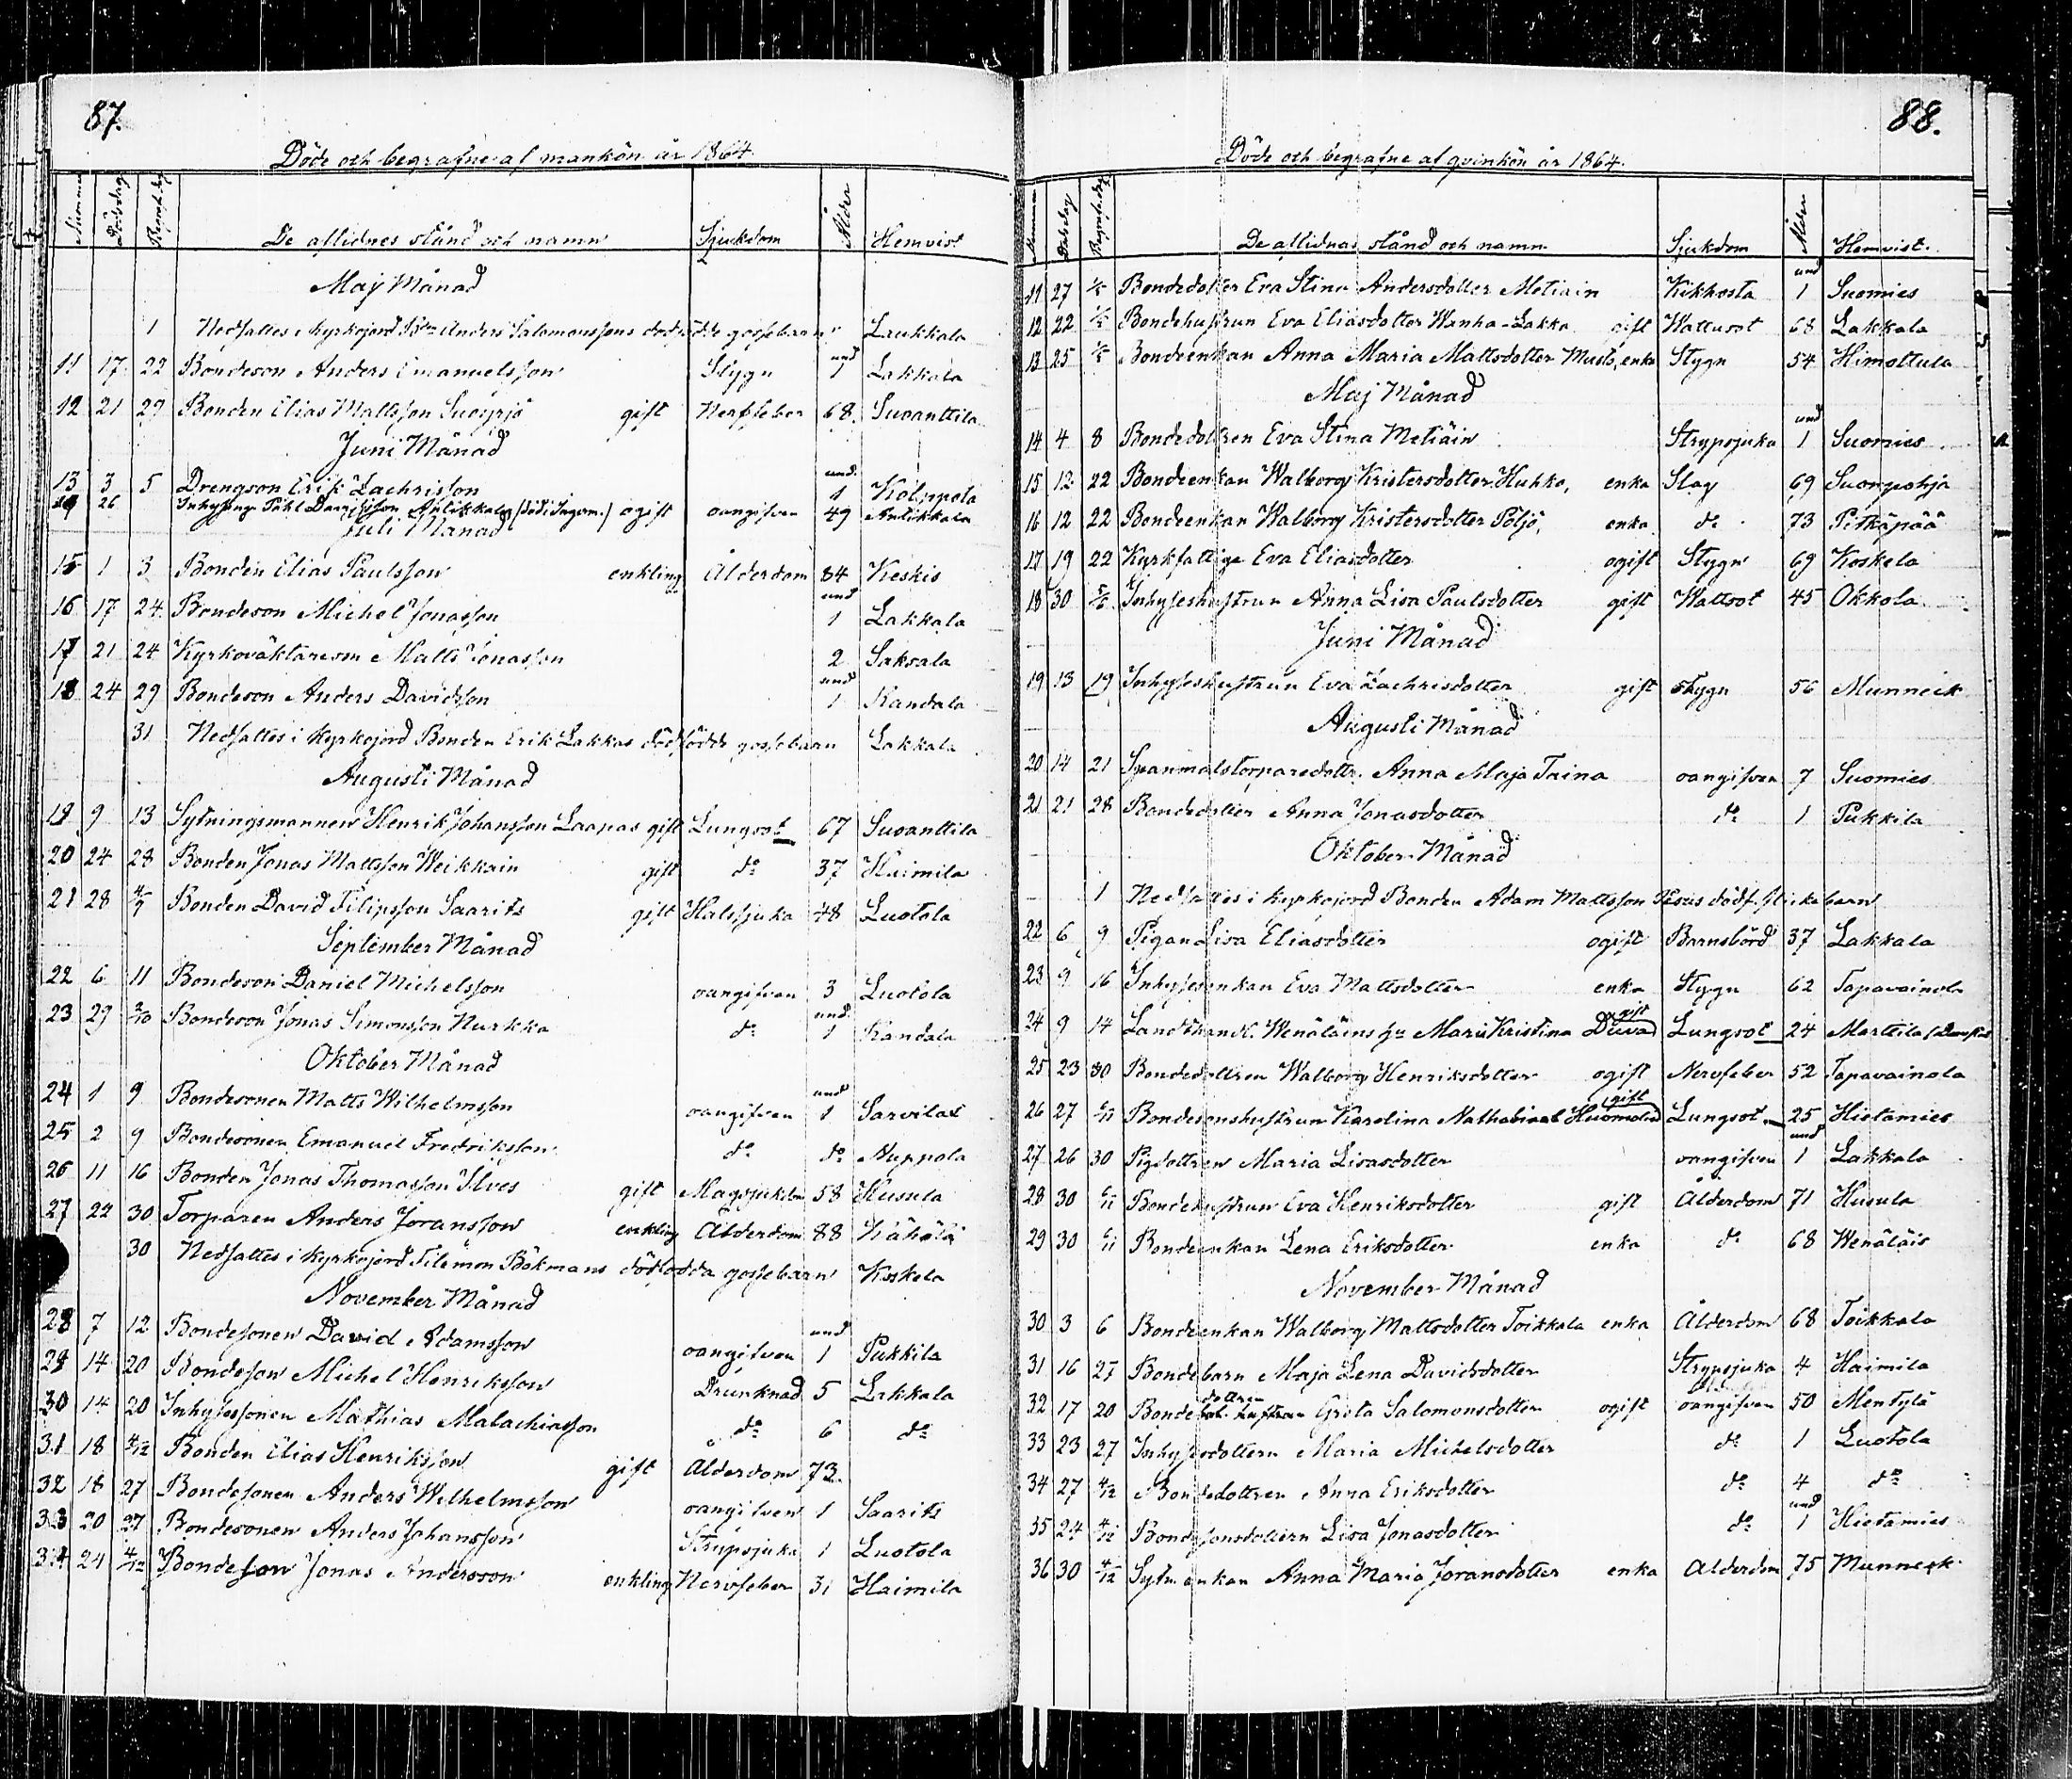 87.
Döde och begrafne af mankön år 1864.
Nummer Dödsdag Begrafn.dag De aflidnes stånd och namn Sjukdom Ålder Hemvist
Maj Månad
1 Nedsattes i kyrkojord Bdn Anders Salomonssons dödfödde gossebarn Laukkala
11 17 22 Bondeson Anders Emanuelsson Stygn und 1 Lakkala
12 21 29 Bonden Elias Mattsson Suojrjö gift Nerffeber 68 Suoanttila
Juni Månad
13 3 5 Drengson Erik Zachrisson und. 1 Kolppola
14 26 Inhysing Påhl Danielsson Anttikkala (död i Ingerm.) ogift oangifven 49 Anttikkala
Juli Månad
15 1 3 Bonden Elias Paulsson enkling Ålderdom 84 Keskis
16 17 24 Bondeson Michel Jonasson und 1 Lakkala
17 21 24 Kyrkoväktareson Matts Jonasson 2 Saksala
18 24 29 Bondeson Anders Davidsson und 1 Kandala
31 Nedsattes i kyrkojord Bonden Erik Lakkas dödfödde gossebarn Lakkala
Augusti Månad
19 9 13 Sytningsmannen Henrik Johansson Laapas gift Lungsot 67 Suoanttila
20 24 28 Bonden Jonas Mattsson Weikkain gift do 37 Haimila
21 28 4/9 Bonden David Filipsson Saarits gift Halssjuka 48 Luotola
September Månad
22 6 11 Bondeson Daniel Michelsson oangifven 3 Luotola
23 29 2/10 Bondeson Jonas Simonsson Hurkka do und. 1 Kandala
Oktober Månad
24 1 9 Bondesonen Matts Wilhelmsson oangifven und 1 Sarvilat
25 2 9 Bondesonen Emanuel Fredriksson do do Auppola
26 11 16 Bonden Jonas Thomasson Ilves gift Magsjukdom 58 Husula
27 22 30 Torparen Anders Joransson enkling Ålderdom 88 Kähölä
30 Nedsattes i kyrkojord Filemon Bökmans dödfödda gossebarn Koskela
November Månad
28 7 12 Bondesonen David Adamsson oangifven und 1 Pukkila
29 14 20 Bondeson Michel Henriksson Drunknad 5 Lakkala
30 14 20 Inhysessonen Mathias Malachiasson do 6 do
31 18 4/12 Bonden Elias Henriksson gift Ålderdom 73
32 18 27 Bondesonen Anders Wilhelmsson oangifven 1 Saarits
33 20 27 Bondesonen Anders Johansson Strypsjuka 1 Luotola
34 24 4/12 Bondeson Jonas Andersson enkling Nervfeber 31 Haimila
88.
Döde och begrafne af qvinkön år 1864.
Nummer Dödsdag Begrafn.dag De aflidnas stånd och namn Sjukdom Ålder Hemvist.
11 27 1/5 Bondedotter Eva Stina Andersdotter Metiäin Kikhosta und 1 Suomies
12 22 1/5 Bondehustrun Eva Eliasdotter Wanha-Lakka gift Wattusot 68 Lakkala
13 25 1/5 Bondeenkan Anna Maria Mattsdotter Musto, enka Stygn 54 Himottula
Maj Månad
14 4 8 Bondedottren Eva Stina Metiäin Strypsjuka und 1 Suomies
15 12 22 Bondeenkan Walborg Kristersdotter Huhko, enka Slag 69 Suonpohja
16 12 22 Bondeenkan Walborg Kristersdotter Pöljö, enka do 73 Pitkäpää
17 19 22 Kyrkfattiga Eva Eliasdotter ogift Stygn 69 Koskela
18 30 5/6 Inhyseshustrun Anna Lisa Paulsdotter gift Wattsot 45 Okkola
Juni Månad
19 13 19 Inhyseshustrun Eva Zachrisdotter gift Stygn 56 Munneik
Augusti Månad
20 14 21 Spanmålstorparedottr. Anna Maja Taina oangifven 7 Suomies
21 21 28 Bondedotter Anna Jonasdotter do 1 Pukkila
Oktober Månad
1 Nedsattes i kyrkojord Bonden Adam Mattsson dödf. flickebarn
22 6 9 Pigan Lisa Eliasdotter ogift Barnsbörd 37 Lakkala
23 9 16 Inhysesenkan Eva Mattsdotter enka Stygn 62 Tapavainola
24 9 14 Landthandl. Wenäläins hu Maria Kristina Duva gift Lungsot 24 Marttila
25 23 30 Bondedottren Walborg Henriksdotter ogift Nervfeber 52 Tapavainola
26 27 6/11 Bondesonshustrun Karolina gift Lungsot 25 Hietamies
27 26 30 Pigdottren Maria Lisasdotter oangifven und 1 Lakkala
28 30 6/11 Bondehustrun Eva Henriksdotter gift Ålderdom 71 Husula
29 30 6/11 Bondeenkan Lena Eriksdotter enka do 68 Wenäläis
November Månad
30 3 6 Bondeenkan Walborg Mattsdotter Toikkala enka Ålderdom 68 Toikkala
31 16 27 Bondebarn Maja Lena Davidsdotter Strypsjuka 4 Haimila
32 17 20 Bondedottren Greta Salomonsdotter ogift oangifven 50 Mentylä
33 23 27 Inhysesdottern Maria Michelsdotter do 1 Luotola
34 27 4/12 Bondedottren Anna Eriksdotter do 4 do
35 24 4/12 Bondesonsdottern Lisa Jonasdotter do und 1 Hietamies
36 30 4/12 Sytn.enkan Anna Maria Joransdotter enka Ålderdom 75 Munneek